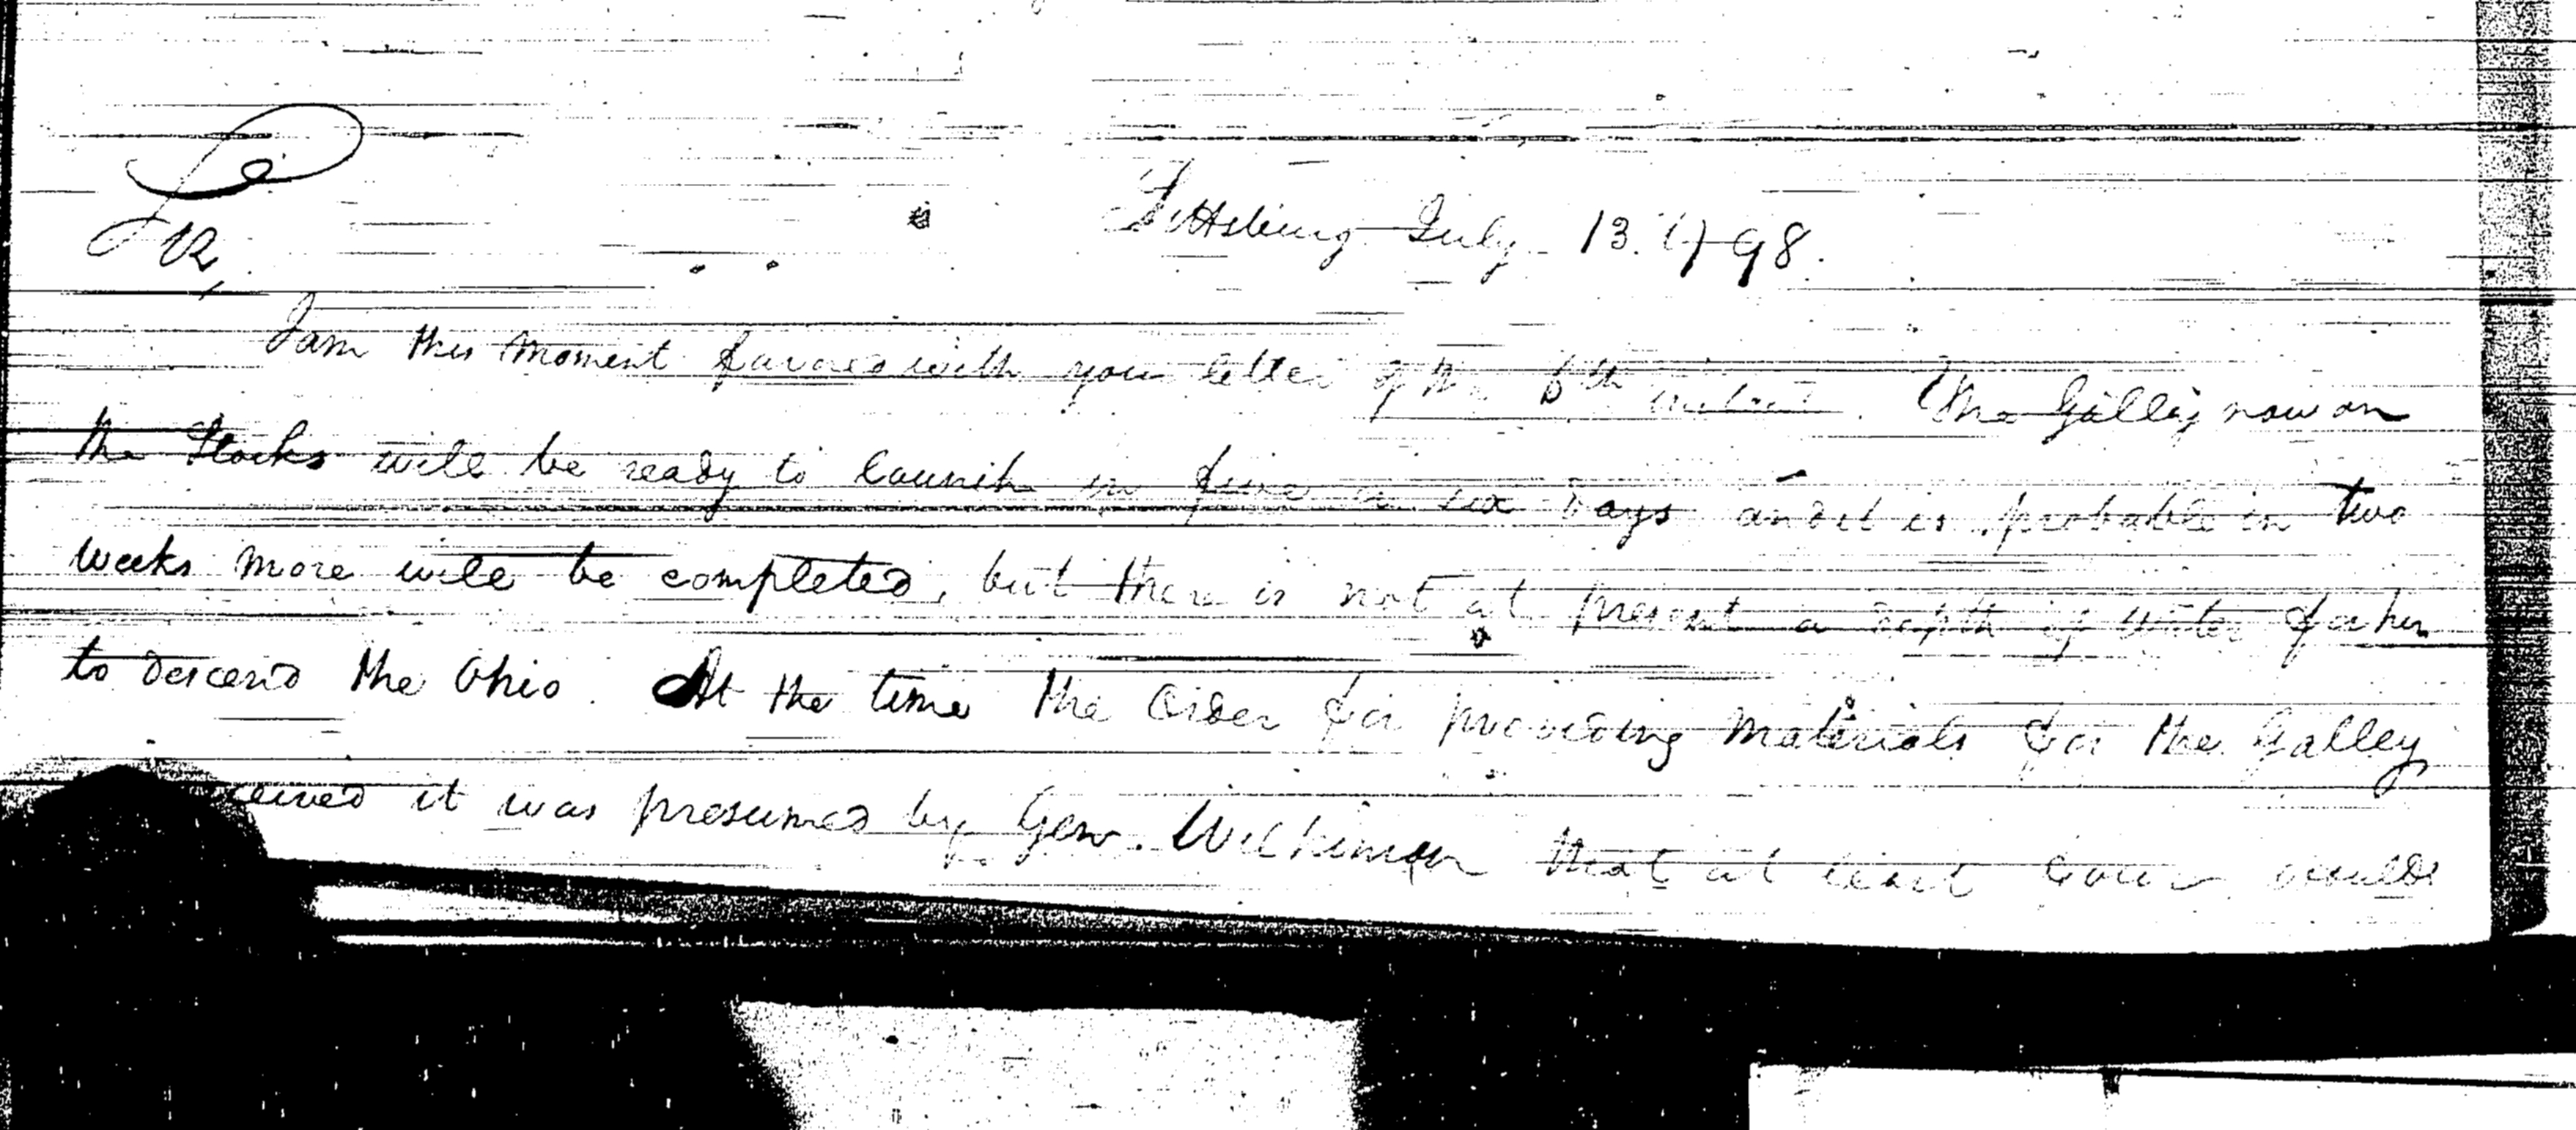 Sir,
Pittsburg July 13. 1798.
I am this moment favored with your letter of the 6th instant. The Galley now on
the Stocks will be ready to launch in five or six Days and it is probable in two
weeks more will be completed, but there is not at present a depth of water for her
to descend the Ohio. At the time the Order for providing Materials for the Galley
ceived it was presumed by Genr. Wilkinson that at least four would